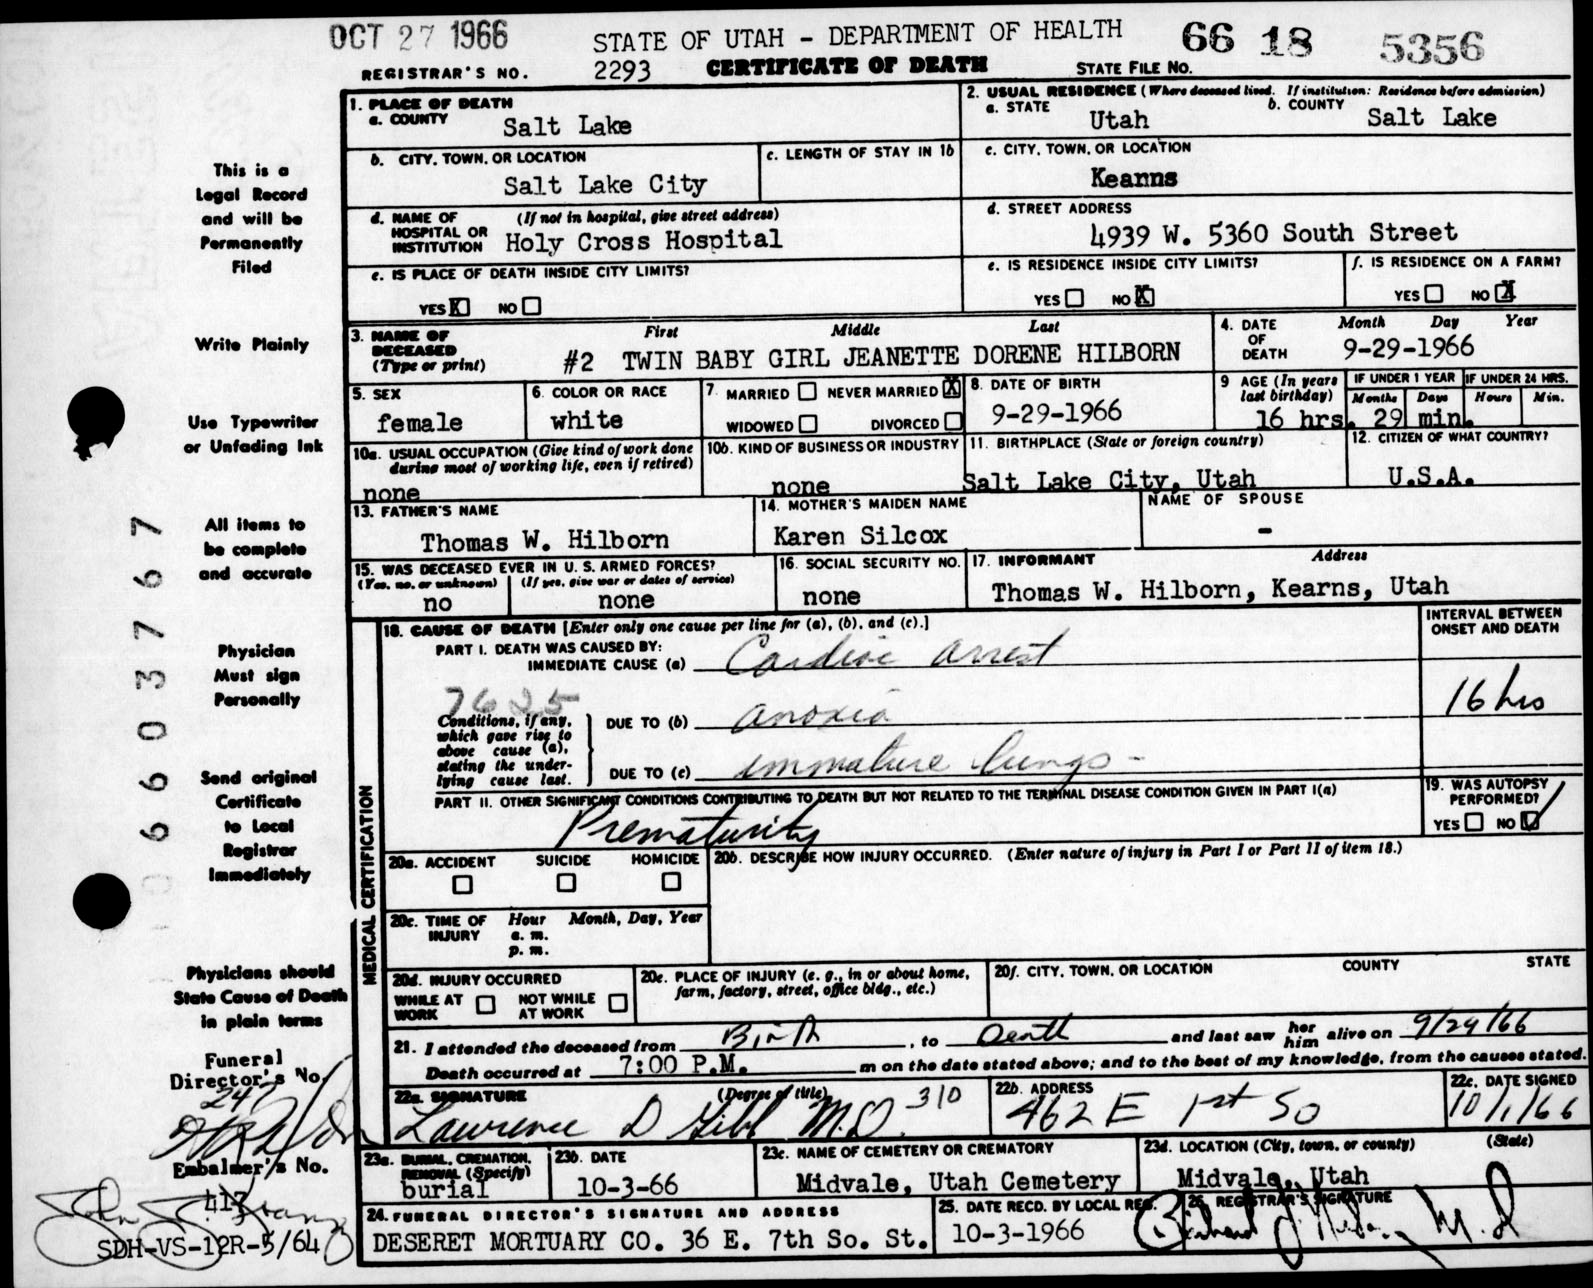 OCT 27 1966
STATE OF UTAH - DEPARTMENT OF HEALTH
66 18 5356
REGISTRAR'S NO. 2293 CERTIFICATE OF DEATH STATE FILE NO.
1. PLACE OF DEATH
a. COUNTY Salt Lake
2. USUAL RESIDENCE (Where deceased lived. If institution: Residence before admission)
a. STATE Utah b. COUNTY Salt Lake
b. CITY, TOWN, OR LOCATION Salt Lake City
c. LENGTH OF STAY IN 1b
c. CITY, TOWN, OR LOCATION Kearns
d. NAME OF HOSPITAL OR INSTITUTION (If not in hospital, give street address) Holy Cross Hospital
d. STREET ADDRESS 4939 W. 5360 South Street
e. IS PLACE OF DEATH INSIDE CITY LIMITS? YES X NO
e. IS RESIDENCE INSIDE CITY LIMITS? YES NO X
f. IS RESIDENCE ON A FARM? YES NO X
3. NAME OF DECEASED (Type or print) First Middle Last
#2 TWIN BABY GIRL JEANETTE DORENE HILBORN
4. DATE OF DEATH Month Day Year
9-29-1966
5. SEX female
6. COLOR OR RACE white
7. MARRIED NEVER MARRIED X
WIDOWED DIVORCED
8. DATE OF BIRTH 9-29-1966
9 AGE (In years last birthday) IF UNDER 1 YEAR Months Days IF UNDER 24 HRS. Hours Min.
16 hrs. 29 min.
10a. USUAL OCCUPATION (Give kind of work done during most of working life, even if retired)
none
10b. KIND OF BUSINESS OR INDUSTRY
none
11. BIRTHPLACE (State or foreign country)
Salt Lake City, Utah
12. CITIZEN OF WHAT COUNTRY?
U.S.A.
13. FATHER'S NAME
Thomas W. Hilborn
14. MOTHER'S MAIDEN NAME
Karen Silcox
NAME OF SPOUSE
-
15. WAS DECEASED EVER IN U. S. ARMED FORCES?
(Yes, no, or unknown) (If yes, give war or dates of service)
no none
16. SOCIAL SECURITY NO.
none
17. INFORMANT Address
Thomas W. Hilborn, Kearns, Utah
18. CAUSE OF DEATH [Enter only one cause per line for (a), (b), and (c).]
INTERVAL BETWEEN ONSET AND DEATH
PART I. DEATH WAS CAUSED BY:
IMMEDIATE CAUSE (a) Cardiac arrest
7625
16 hrs
Conditions, if any, which gave rise to above cause (a), stating the underlying cause last.
DUE TO (b) anoxia
DUE TO (c) immature lungs -
PART II. OTHER SIGNIFICANT CONDITIONS CONTRIBUTING TO DEATH BUT NOT RELATED TO THE TERMINAL DISEASE CONDITION GIVEN IN PART I(a)
Prematurity
19. WAS AUTOPSY PERFORMED?
YES NO ✓
20a. ACCIDENT SUICIDE HOMICIDE
20b. DESCRIBE HOW INJURY OCCURRED. (Enter nature of injury in Part I or Part II of item 18.)
20c. TIME OF INJURY Hour Month, Day, Year
a. m.
p. m.
20d. INJURY OCCURRED
WHILE AT WORK NOT WHILE AT WORK
20e. PLACE OF INJURY (e. g., in or about home, farm, factory, street, office bldg., etc.)
20f. CITY, TOWN, OR LOCATION COUNTY STATE
21. I attended the deceased from Birth, to Death and last saw her him alive on 9/29/66
Death occurred at 7:00 P.M. m on the date stated above; and to the best of my knowledge, from the causes stated.
22a. SIGNATURE (Degree of title) 310
Lawrence D M.D.
22b. ADDRESS
462 E 1st So
22c. DATE SIGNED
10/1/66
23a. BURIAL, CREMATION, REMOVAL (Specify)
burial
23b. DATE
10-3-66
23c. NAME OF CEMETERY OR CREMATORY
Midvale, Utah Cemetery
23d. LOCATION (City, town, or county) (State)
Midvale, Utah
24. FUNERAL DIRECTOR'S SIGNATURE AND ADDRESS
DESERET MORTUARY CO. 36 E. 7th So. St.
25. DATE RECD. BY LOCAL REG.
10-3-1966
26. REGISTRAR'S SIGNATURE
M.D
MEDICAL CERTIFICATION
This is a
Legal Record
and will be
Permanently
Filed
Write Plainly
Use Typewriter
or Unfading Ink
All items to
be complete
and accurate
Physician
Must sign
Personally
Send original
Certificate
to Local
Registrar
Immediately
Physicians should
State Cause of Death
in plain terms
Funeral
Director's No.
Embalmer's No.
417
SDH-VS-12R-5/64
6603767